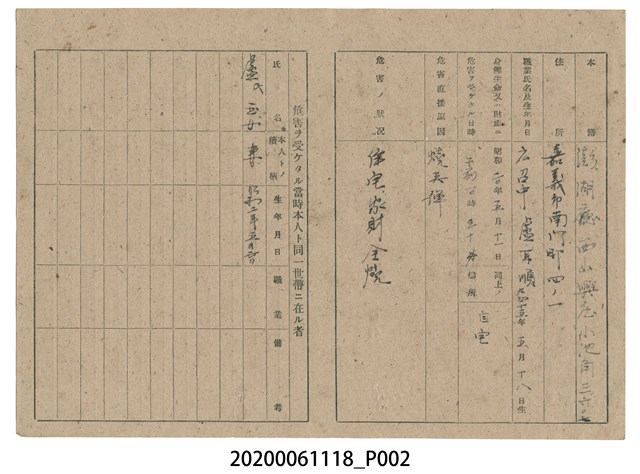 本籍 澎湖廳西山興庄小池角三六七
住所 嘉義市南門町四ノ一
職業氏名及生年月日 應召中 盧 順 大正十五年五月十八日生
身體生命又ハ財產ニ危害ヲ受ケタル日時 昭和二〇年五月十一日 午前 時三十分 同上ノ場所 自宅
危害直接原因 燒夷彈
危害ノ狀況 住宅家財全燒
危害ヲ受ケタル當時本人ト同一世帶ニ在ル者
氏名 本人トノ續柄 生年月日 職業 備考
盧氏 玉女 妻 昭和二年五月 日
20200061118_P002